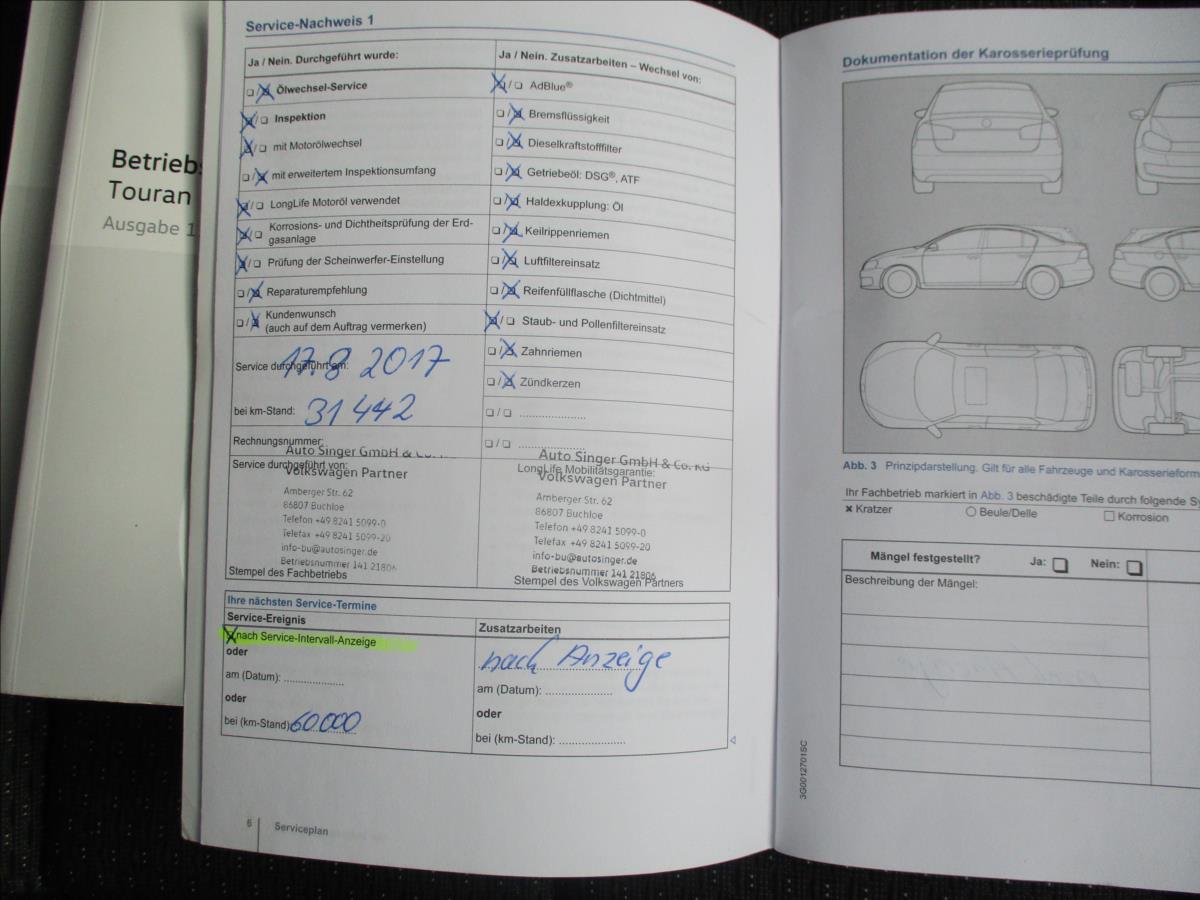 Betriebs
Touran
Ausgabe 1
Service-Nachweis 1
Ja / Nein. Durchgeführt wurde:
☐/☒ Ölwechsel-Service
☒/☐ Inspektion
☒/☐ mit Motorölwechsel
☐/☒ mit erweitertem Inspektionsumfang
☒/☐ LongLife Motoröl verwendet
☒/☐ Korrosions- und Dichtheitsprüfung der Erd-
gasanlage
☒/☐ Prüfung der Scheinwerfer-Einstellung
☐/☒ Reparaturempfehlung
☐/☒ Kundenwunsch
(auch auf dem Auftrag vermerken)
Service durchgeführt am: 17.8 2017
bei km-Stand: 31 442
Rechnungsnummer:
Service durchgeführt von:
Auto Singer GmbH & Co. KG
Volkswagen Partner
Amberger Str. 62
86807 Buchloe
Telefon +49 8241 5099-0
Telefax +49 8241 5099-20
info-bu@autosinger.de
Betriebsnummer 141 21806
Stempel des Fachbetriebs
Ja / Nein. Zusatzarbeiten – Wechsel von:
☒/☐ AdBlue®
☐/☒ Bremsflüssigkeit
☐/☒ Dieselkraftstofffilter
☐/☒ Getriebeöl: DSG®, ATF
☐/☒ Haldexkupplung: Öl
☐/☒ Keilrippenriemen
☐/☒ Luftfiltereinsatz
☐/☒ Reifenfüllflasche (Dichtmittel)
☒/☐ Staub- und Pollenfiltereinsatz
☐/☒ Zahnriemen
☐/☒ Zündkerzen
☐/☐ ......................
☐/☐ ......................
LongLife Mobilitätsgarantie:
Auto Singer GmbH & Co. KG
Volkswagen Partner
Amberger Str. 62
86807 Buchloe
Telefon +49 8241 5099-0
Telefax +49 8241 5099-20
info-bu@autosinger.de
Betriebsnummer 141 21806
Stempel des Volkswagen Partners
Ihre nächsten Service-Termine
Service-Ereignis
☒ nach Service-Intervall-Anzeige
oder
am (Datum): ....................
oder
bei (km-Stand) 60.000
Zusatzarbeiten
nach Anzeige
am (Datum): ......................
oder
bei (km-Stand): ......................
6 Serviceplan
Dokumentation der Karosserieprüfung
Abb. 3 Prinzipdarstellung. Gilt für alle Fahrzeuge und Karosserieform
Ihr Fachbetrieb markiert in Abb. 3 beschädigte Teile durch folgende Sy
✖ Kratzer ○ Beule/Delle ☐ Korrosion
Mängel festgestellt? Ja: ☐ Nein: ☐
Beschreibung der Mängel:
3G0012701SC